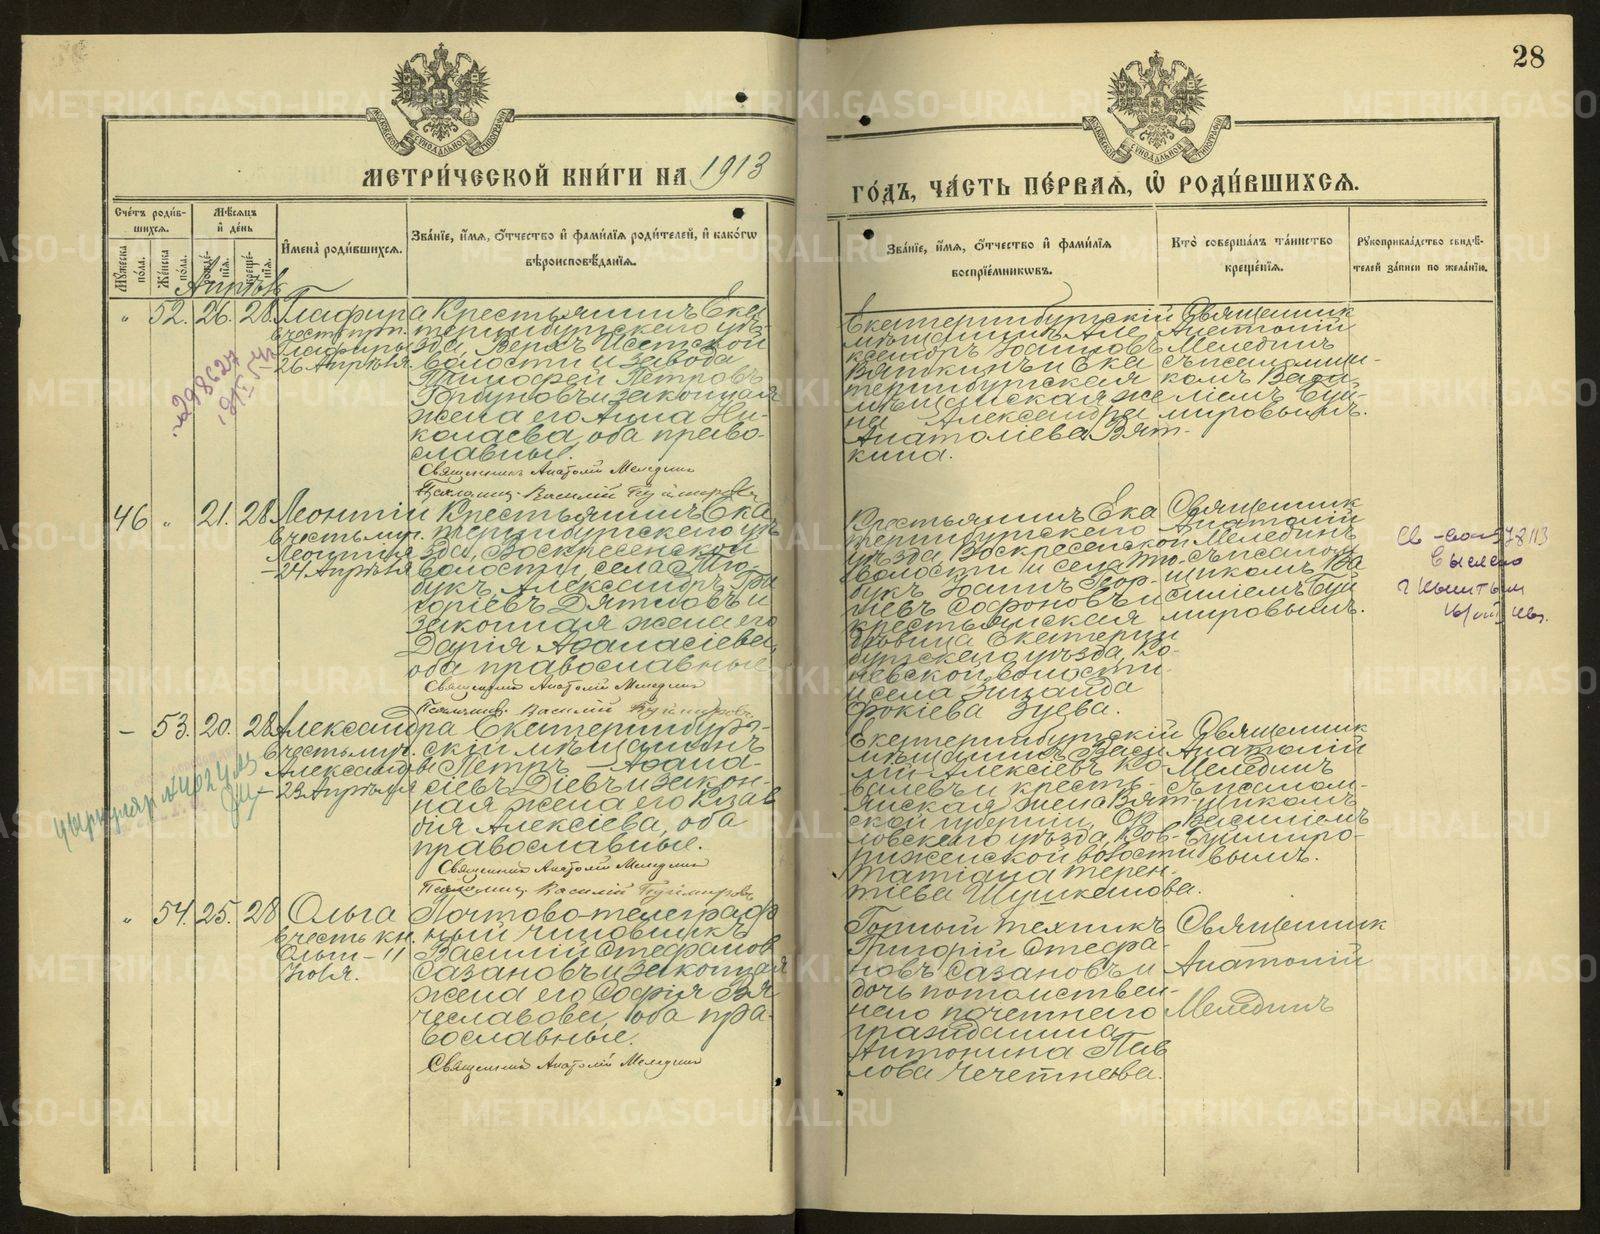 28
МОСКОВСКОЙ СУНОДАЛЬНОЙ ТИПОГРАФІИ
МОСКОВСКОЙ СУНОДАЛЬНОЙ ТИПОГРАФІИ
МЕТРИ́ЧЕСКОЙ КНИ́ГИ НА 1913
ГО́ДЪ, ЧА́СТЬ ПЕ́РВАѦ, Ѡ҆ РОДИ́ВШИХСѦ.
Сче́тъ роди́в-
шихсѧ.
Мꙋ́жеска по́ла.
Же́нска по́ла.
Мѣ́сѧцъ
и҆ де́нь
рожде́-нїѧ.
креще́-нїѧ.
И҆мена̀ роди́вшихсѧ.
Зва́нїе, и҆́мѧ, ѻ҆́тчество и҆ фамі́лїѧ роди́телей, и҆ како́гѡ
вѣроисповѣ́данїѧ.
Зва́нїе, и҆́мѧ, ѻ҆́тчество и҆ фамі́лїѧ
воспрїе́мникѡвъ.
Кто̀ соверша́лъ та́инство
креще́нїѧ.
Рꙋкоприкла́дство свидѣ́-
телей за́писи по жела́нїю.
Апрѣль
" 52. 26. 28. Глафира
въ честь прп.
Глафиры
26 Апрѣля.
Крестьянинъ Ека
теринбургскаго уѣз-
да, Верхъ Исетской
волости и завода
Тимофей Петровъ
Горуновъ и законная
жена его Анна Ни-
колаева, оба право-
славные.
Священникъ Анатолій Меледин
Псаломщ. Василій Буймировъ
Екатеринбургскій
мѣщанинъ Але
ксандръ Іоанновъ
Вяткинъ и Ека
теринбургская
мѣщанская же
на Александра
Анатоліева Вят-
кина.
Священник
Анатолій
Меледин
съ псаломщи-
комъ Васи-
ліемъ Буй-
мировымъ.
№298627
46 " 21. 28. Леонтій
въ честь муч.
Леонтія
- 24 Апрѣля
Крестьянинъ Ека
теринбургскаго уѣ
зда, Воскресенской
волости, села Тю
букъ, Александръ Гри
горіевъ Дятловъ и
законная жена его
Дарія Аѳанасіева,
оба православные
Священник Анатолій Меледин
Псаломщ. Василій Буймировъ
Крестьянин Ека
теринбургскаго
уѣзда Воскресенской
волости и села Тю-
букъ Іоанн Геор-
гіевъ Софоновъ и
крестьянская
дѣвица Екатерин
бургскаго уѣзда, Ко-
невской волости
и села Зинаида
Фокіева Зуева.
Священник
Анатолій
Мелединъ
съ псалом-
щикомъ Ва
силіемъ Буй
мировымъ.
- 53. 20. 28 Александра
въ честь муч.
Александры
- 23 Апрѣля
Екатеринбург-
скій мѣщанинъ
Петръ Аѳана-
сіевъ Діевъ и закон-
ная жена его Клав
дія Алексіева, оба
православные.
Священник Анатолій Меледин
Псаломщ. Василій Буймировъ
Екатеринбургскій
мѣщанинъ Васи
лій Алексіевъ Ко-
валевъ и кресть-
янская жена Вят-
ской губерніи, Ор
ловскаго уѣзда,
волости
Татіана Терен-
тіева Шушканова.
Священник
Анатолій
Мелединъ
съ псалом-
щиком
Василіемъ
Буймиро-
вымъ.
циркуляр №4024
" 54. 25. 28 Ольга
въ честь кн.
Ольги - 11
Іюля.
Почтово-телеграф
ный чиновникъ
Василій Стефанов
Сазановъ и законная
жена его Софія Вя
чеславова, оба пра-
вославные.
Священник Анатолій Меледин
Горный техникъ
Григорій Стефа-
новъ Сазановъ и
дочь потомствен-
наго почетнаго
гражданина
Антонина Пав
лова Чечетнева.
Священник
Анатолій
Мелединъ
METRIKI.GASO-URAL.RU